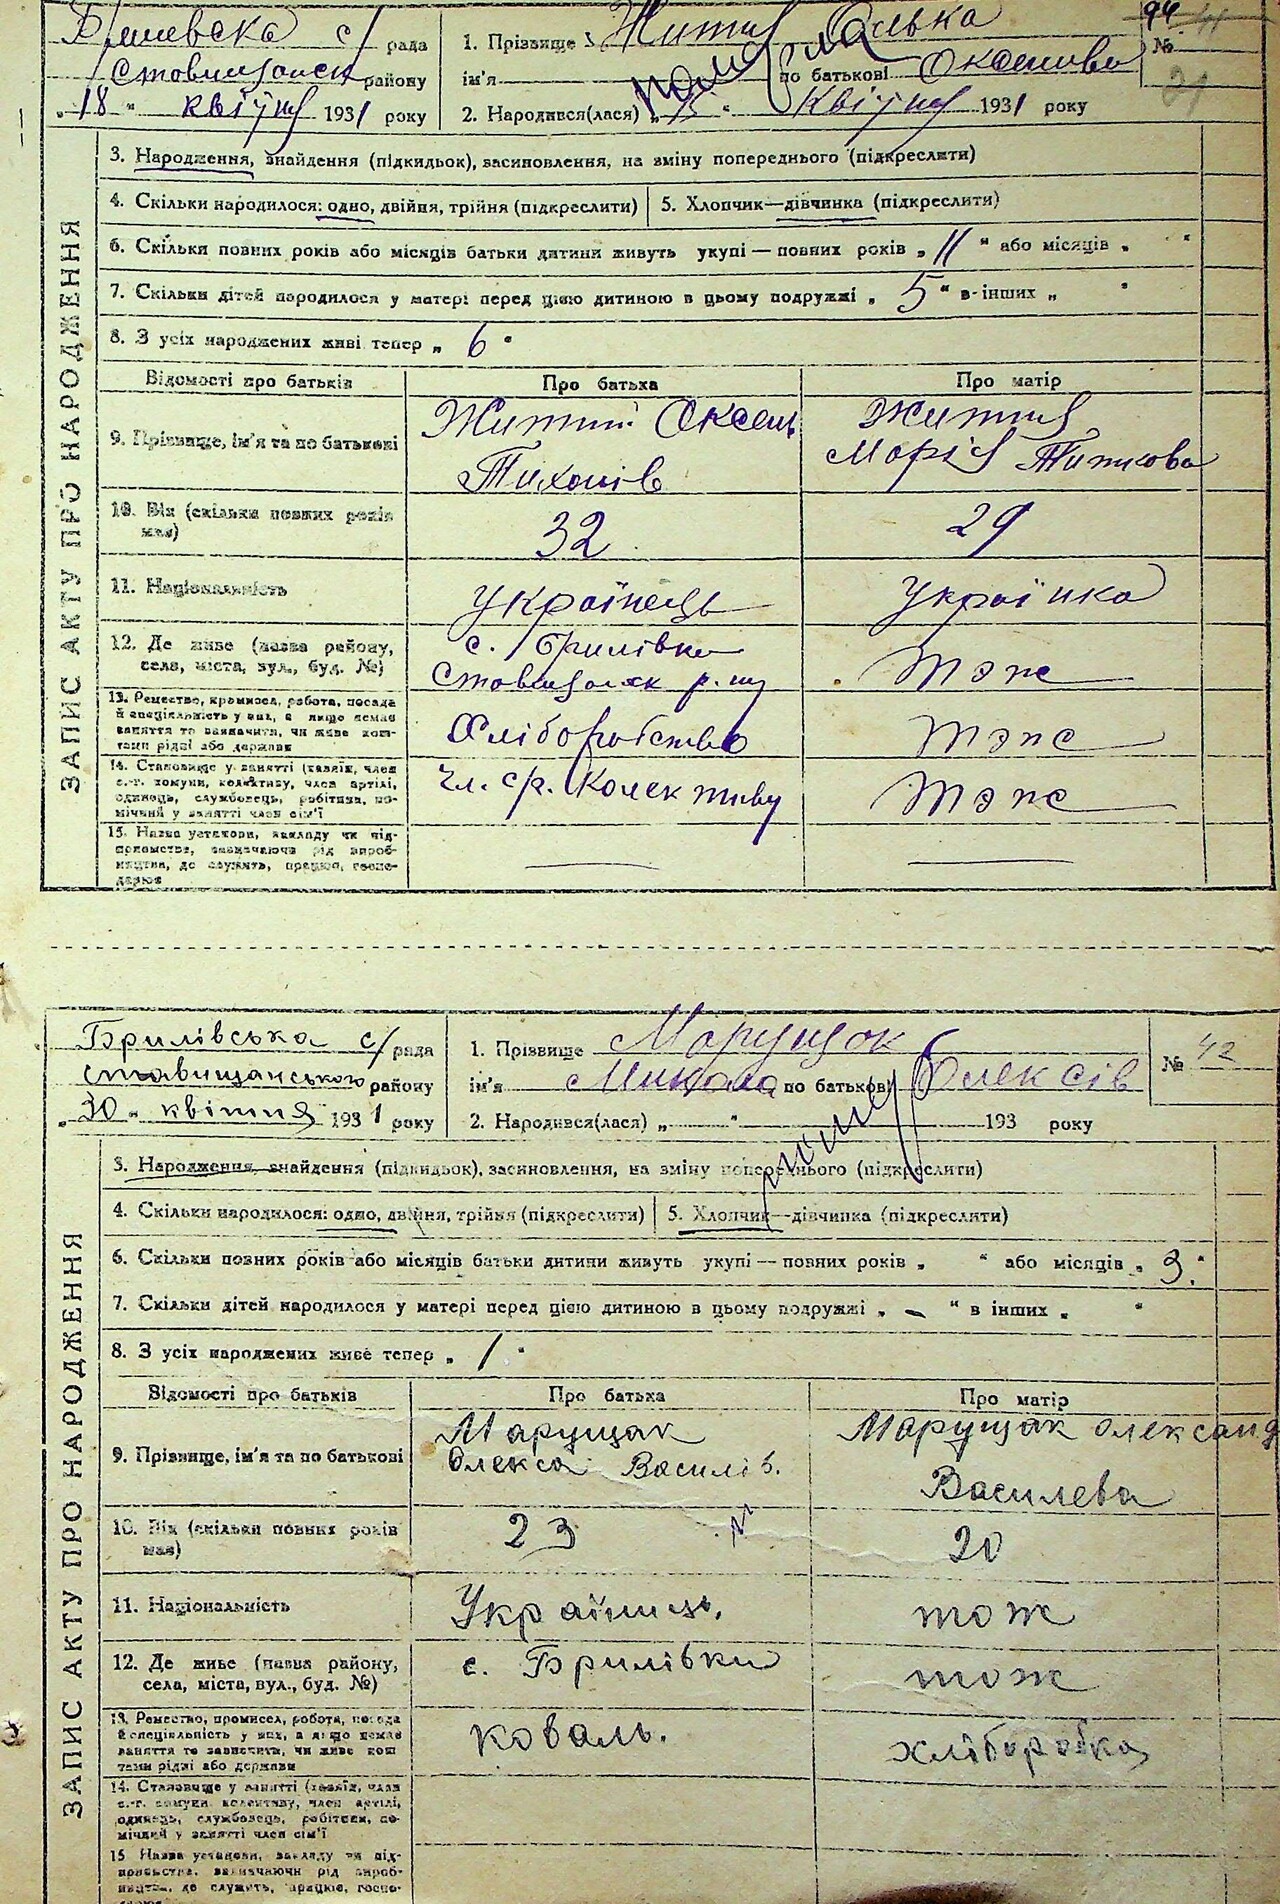 с/рада
Ставищанськ району
"18" квітня 1931 року
1. Прізвище Житня Олька
ім'я по батькові Оксентіва
померла
№ 94 41
21
2. Народився(лася) „15" Квітня 1931 року
ЗАПИС АКТУ ПРО НАРОДЖЕННЯ
3. Народження, знайдення (підкидьок), засиновлення, на зміну попереднього (підкреслити)
4. Скільки народилося: одно, двійня, трійня (підкреслити) 5. Хлопчик—дівчинка (підкреслити)
6. Скільки повних років або місяців батьки дитини живуть укупі — повних років „11" або місяців „ "
7. Скільки дітей народилося у матері перед цією дитиною в цьому подружжі „5" в інших „ "
8. З усіх народжених живі тепер „6"
Відомості про батьків Про батька Про матір
9. Прізвище, ім'я та по батькові Житний Оксень Житня
Тихонів Марія Титкова
10. Вік (скільки повних років
має) 32 29
11. Національність Українець Українка
12. Де живе (назва району,
села, міста, вул., буд. №) с. Брилівка
Ставищанск р-ну Тэпс
13. Ремество, промисел, робота, посада
й спеціяльність у них, а якщо немає
заняття то зазначити, чи живе кош-
тами рідні або держави Хліборобство тэпс
14. Становище у занятті (хазяїн, член
с.-г. комуни, колективу, член артілі,
одинець, службовець, робітник, по-
мічний у занятті член сім'ї чл. с/г. Колективу тэпс
15. Назва установи, закладу чи під-
приємства, зазначаючи рід вироб-
ництва, де служить, працює, госпо-
дарює
Брилівська с/рада
Ставищанського району
„30" квітня 1931 року
1. Прізвище Марущак
ім'я Микола по батькові Олексів
№ 42
2. Народився(лася) „ " 193 року
ЗАПИС АКТУ ПРО НАРОДЖЕННЯ
3. Народження, знайдення (підкидьок), засиновлення, на зміну попереднього (підкреслити)
4. Скільки народилося: одно, двійня, трійня (підкреслити) 5. Хлопчик—дівчинка (підкреслити)
6. Скільки повних років або місяців батьки дитини живуть укупі — повних років „ " або місяців „3."
7. Скільки дітей народилося у матері перед цією дитиною в цьому подружжі „–" в інших „ "
8. З усіх народжених живе тепер „1"
Відомості про батьків Про батька Про матір
9. Прізвище, ім'я та по батькові Марущак Марущак Олександ
Олекса Василів. Василева
10. Вік (скільки повних років
має) 23 20
11. Національність Українець. тож
12. Де живе (назва району,
села, міста, вул., буд. №) с. Брилівки тож
13. Ремество, промисел, робота, посада
й спеціяльність у них, а якщо немає
заняття то зазначити, чи живе кош
тами рідні або держави коваль. хліборобка
14. Становище у занятті (хазяїн, член
с.-г. комуни, колективу, член артілі,
одинець, службовець, робітник, по-
мічний у занятті член сім'ї
15 Назва установи, закладу чи під-
приємства, зазначаючи рід вироб-
ництва, де служить, працює, госпо-